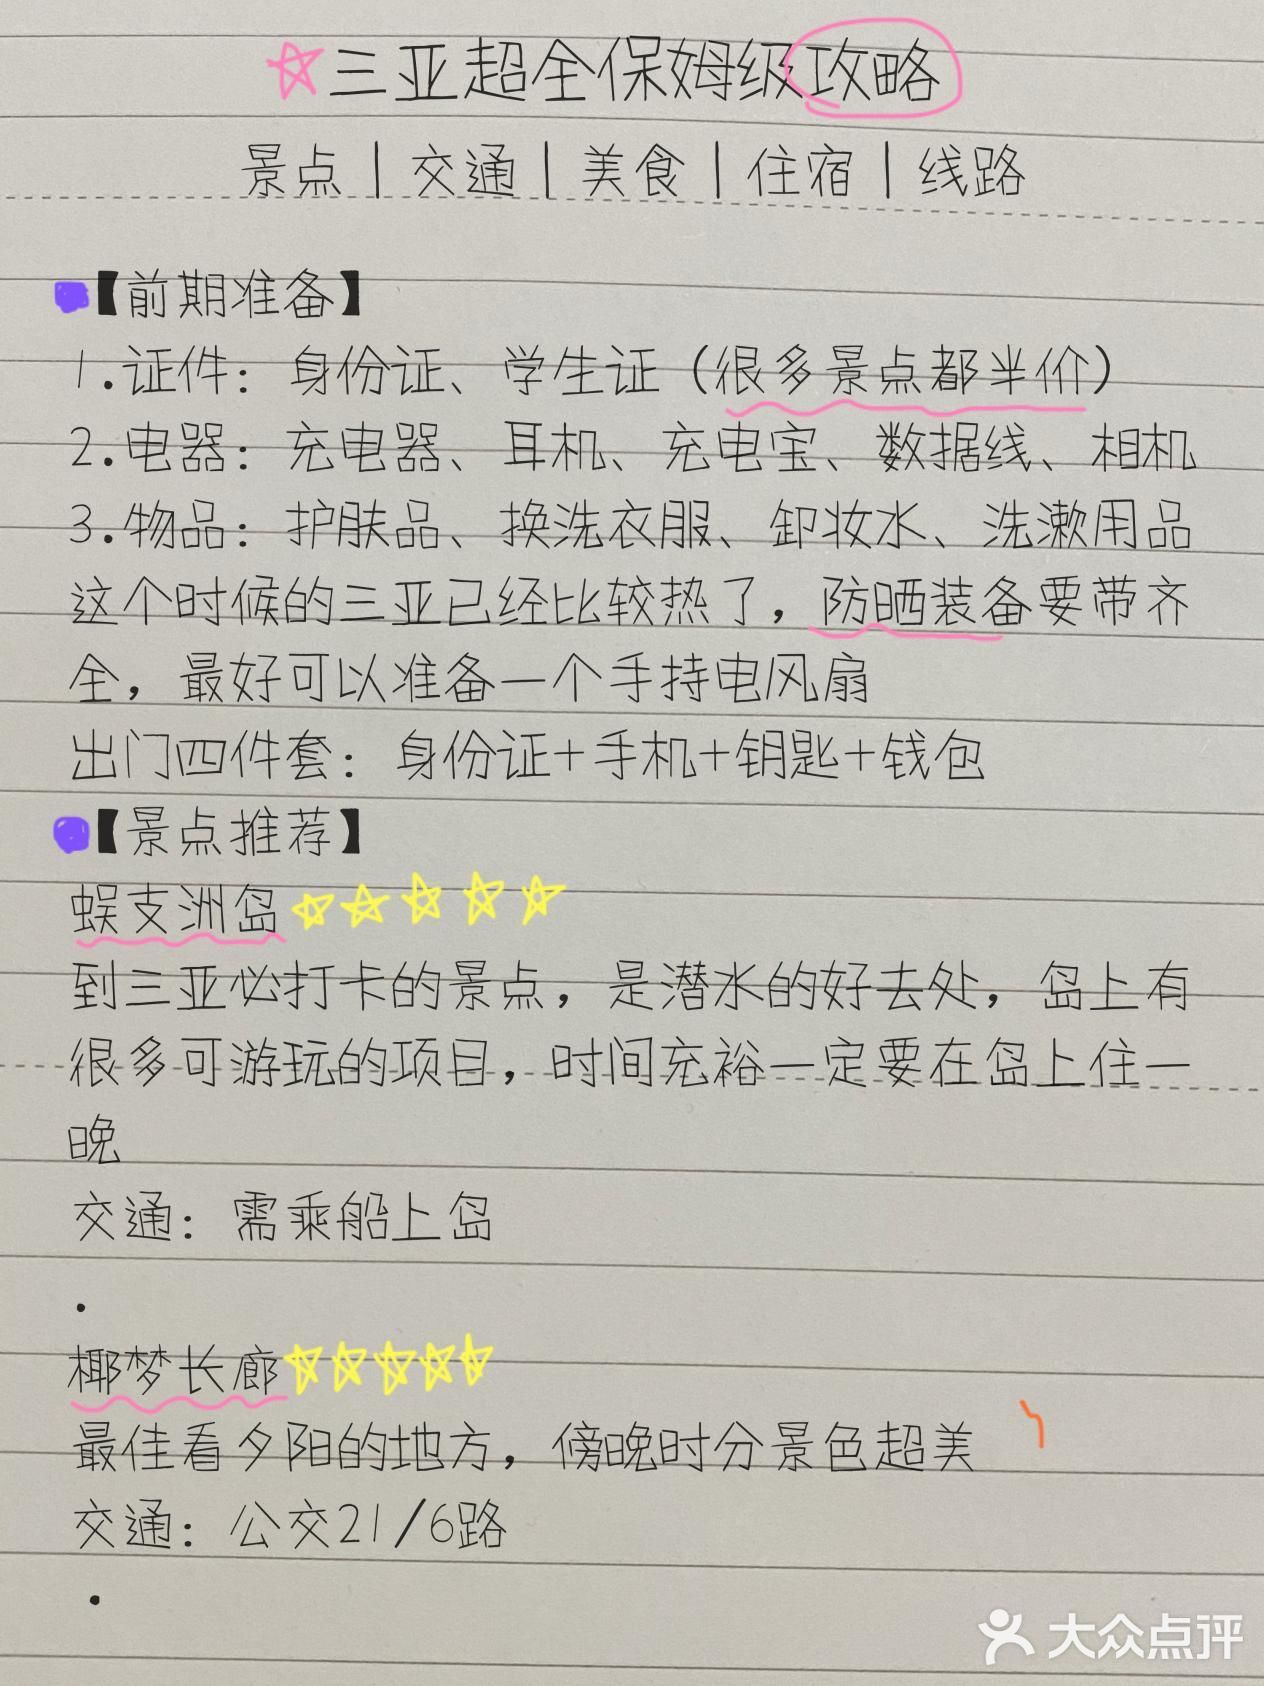 三亚超全保姆级攻略
景点|交通|美食|住宿|线路
【前期准备】
1.证件：身份证、学生证（很多景点都半价）
2.电器：充电器、耳机、充电宝、数据线、相机
3.物品：护肤品、换洗衣服、卸妆水、洗漱用品
这个时候的三亚已经比较热了，防晒装备要带齐
全，最好可以准备一个手持电风扇
出门四件套：身份证+手机+钥匙+钱包
【景点推荐】
蜈支洲岛
到三亚必打卡的景点，是潜水的好去处，岛上有
很多可游玩的项目，时间充裕一定要在岛上住一
晚
交通：需乘船上岛
.
椰梦长廊
最佳看夕阳的地方，傍晚时分景色超美
交通：公交21/6路
.
大众点评